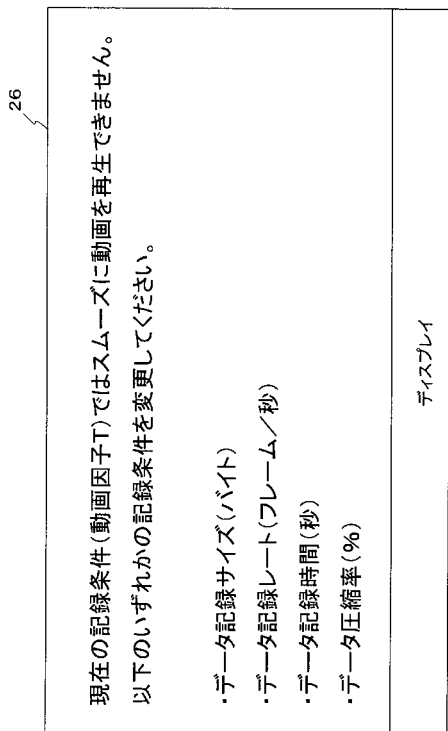 26
現在の記録条件(動画因子T)ではスムーズに動画を再生できません。
以下のいずれかの記録条件を変更してください。
・データ記録サイズ(バイト)
・データ記録レート(フレーム／秒)
・データ記録時間(秒)
・データ圧縮率(%)
ディスプレイ